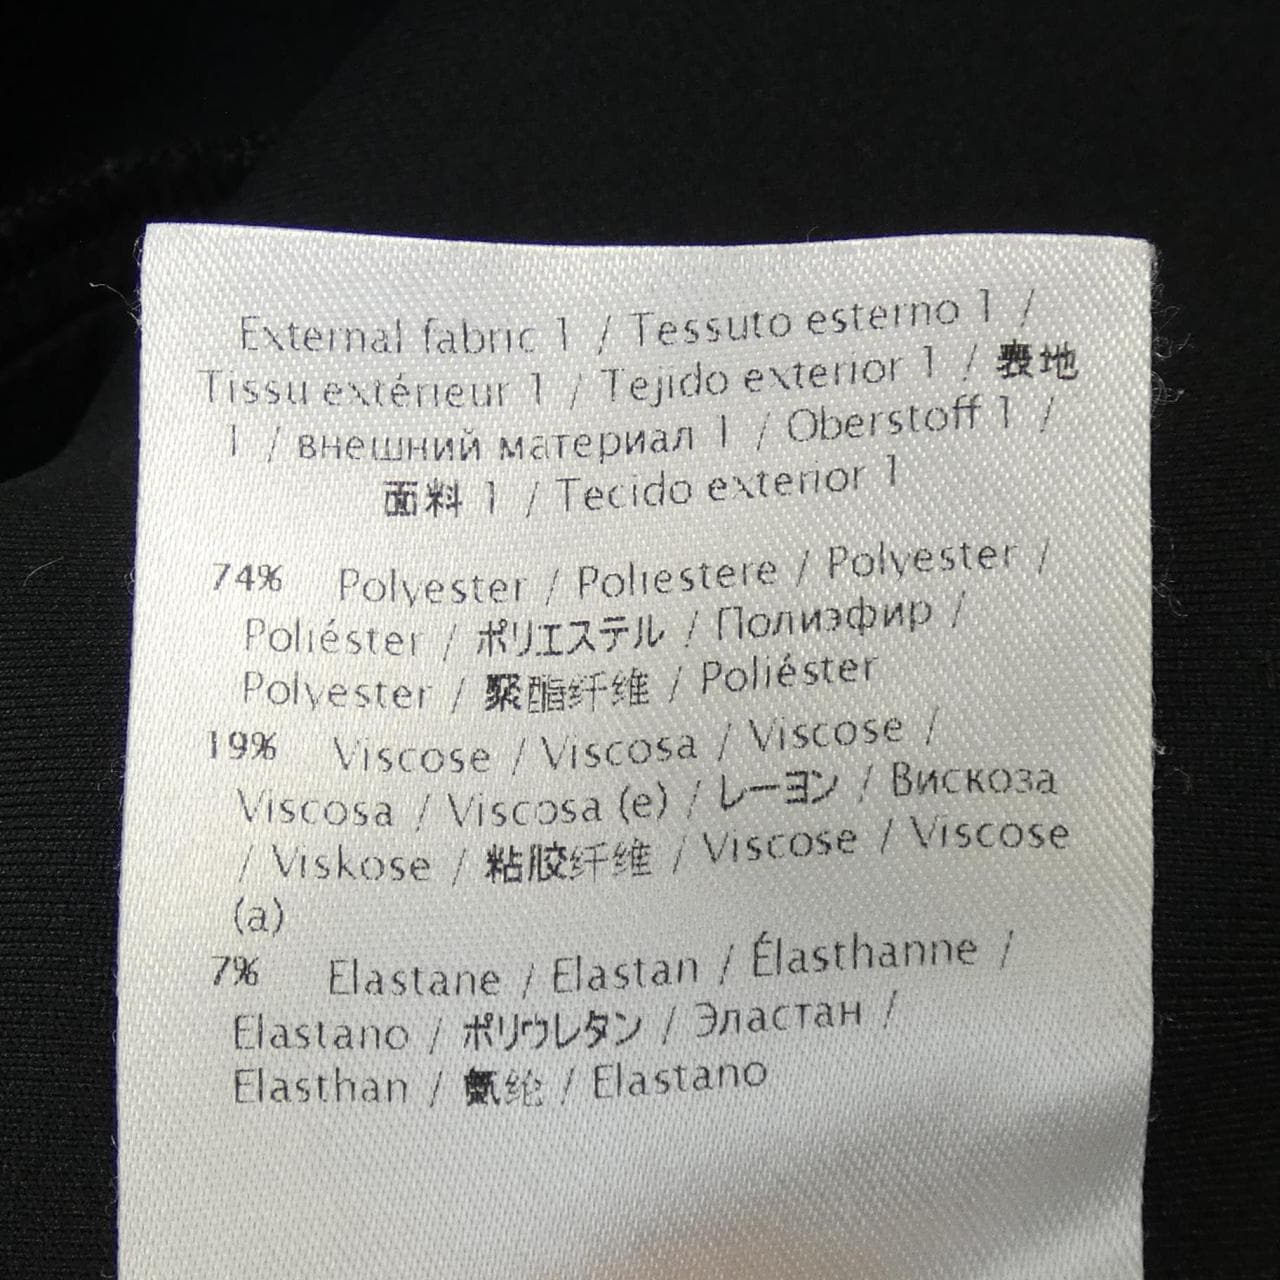 External fabric 1 / Tessuto esterno 1 /
Tissu extérieur 1 / Tejido exterior 1 / 表地
1 / внешний материал 1 / Oberstoff 1 /
面料 1 / Tecido exterior 1
74% Polyester / Poliestere / Polyester /
Poliéster / ポリエステル / Полиэфир /
Polyester / 聚酯纤维 / Poliéster
19% Viscose / Viscosa / Viscose /
Viscosa / Viscosa (e) / レーヨン / Вискоза
/ Viskose / 粘胶纤维 / Viscose / Viscose
(a)
7% Elastane / Elastan / Élasthanne /
Elastano / ポリウレタン / Эластан /
Elasthan / 氨纶 / Elastano